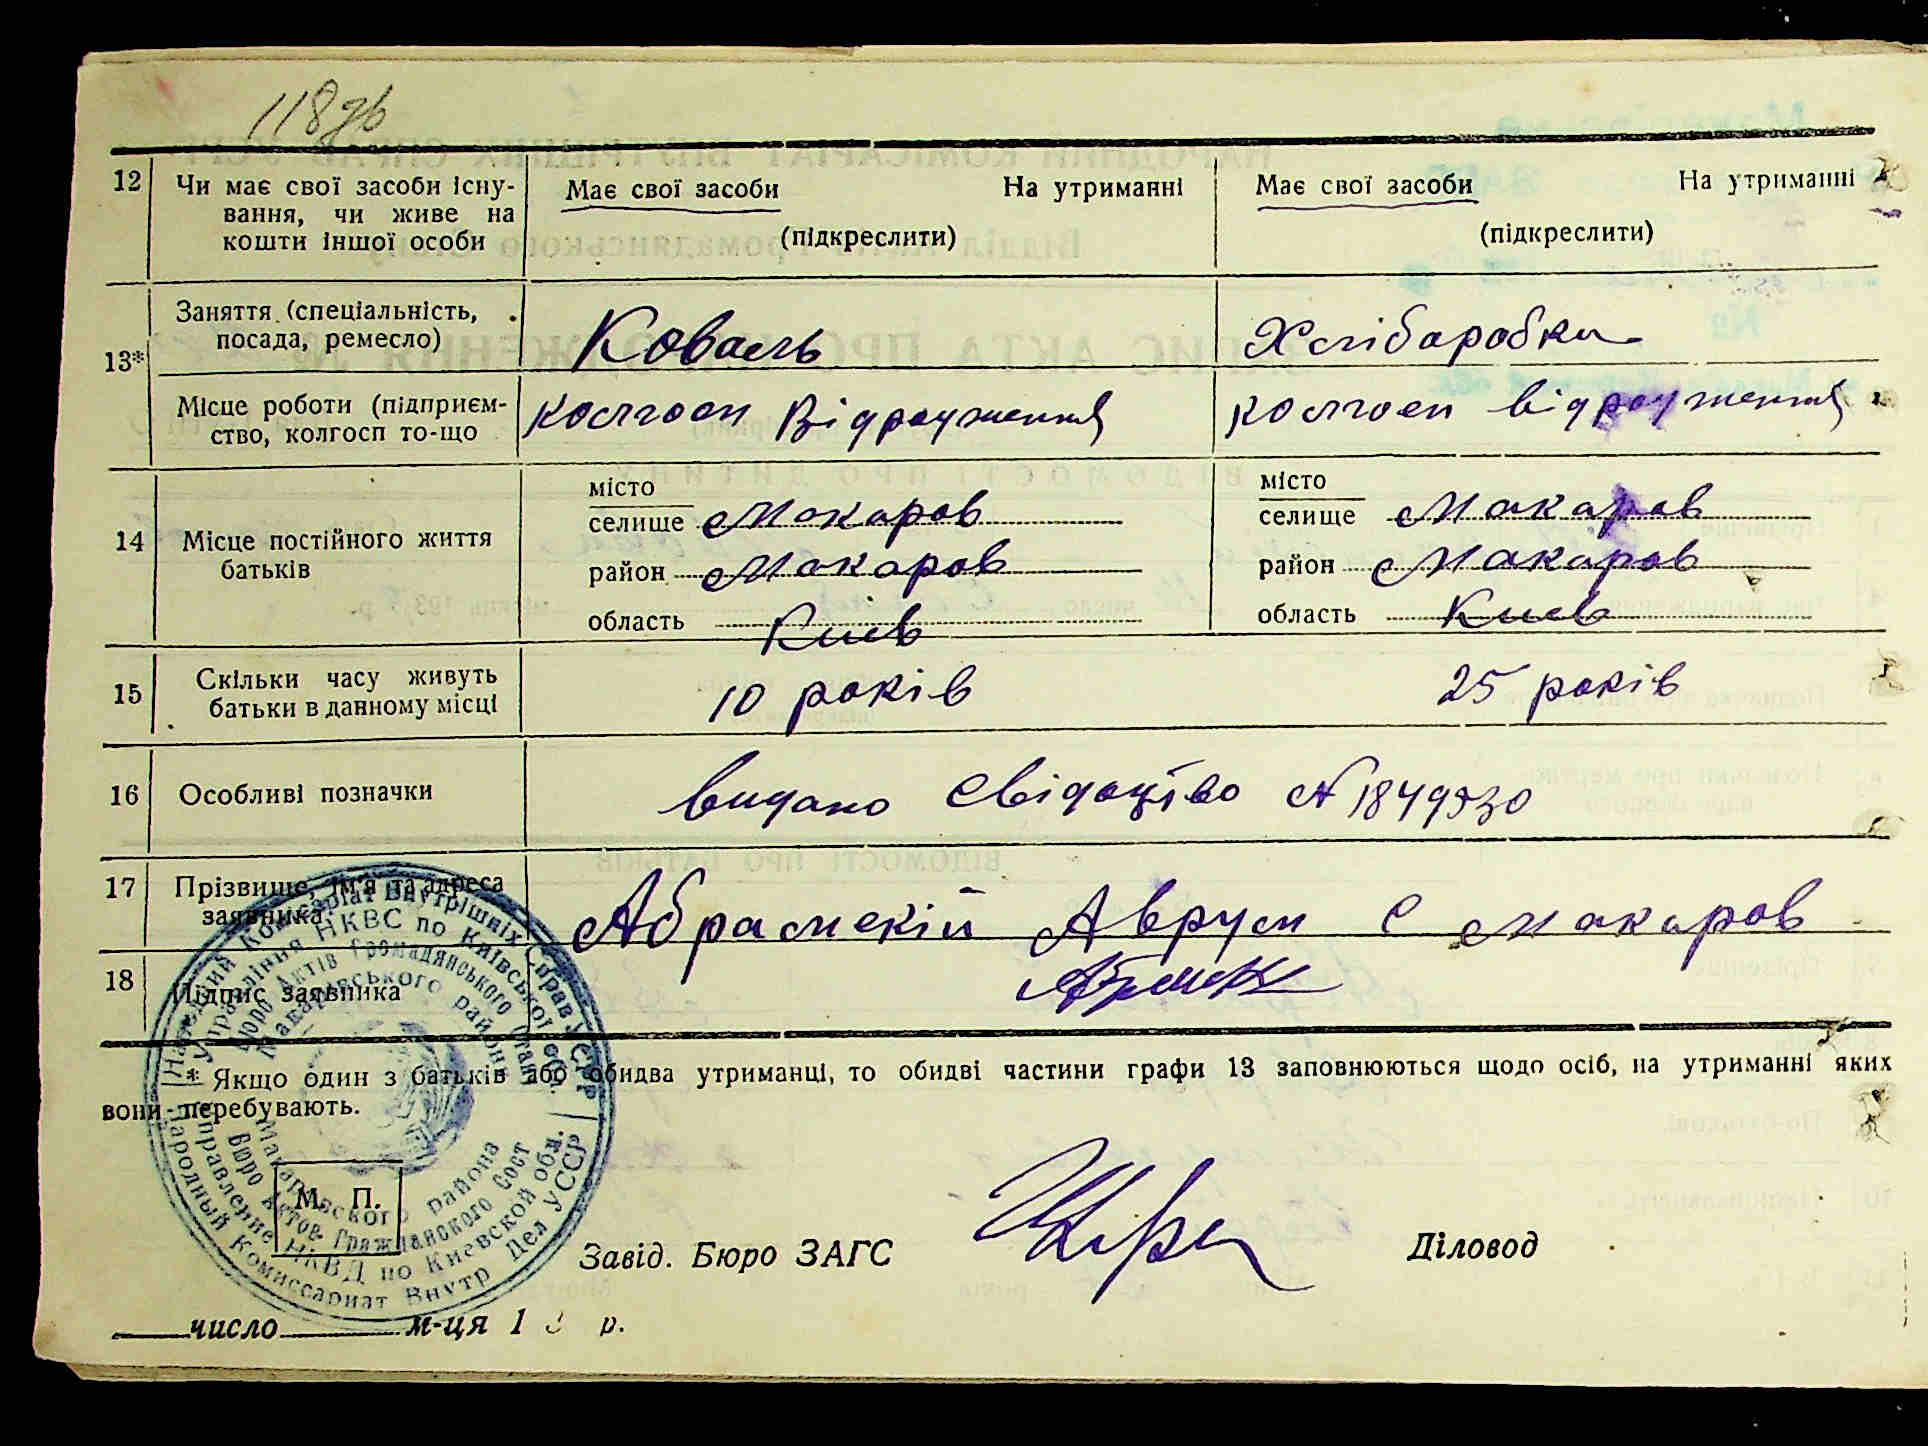 118зв
12 Чи має свої засоби існу- Має свої засоби На утриманні Має свої засоби На утриманні
вання, чи живе на
кошти іншої особи (підкреслити) (підкреслити)
Заняття (спеціальність,
посада, ремесло) Коваль Хлібаробка
13*
Місце роботи (підприєм- колгосп Відродження колгосп Відродження
ство, колгосп то-що
місто місто
селище Макаров селище Макаров
14 Місце постійного життя
батьків район Макаров район Макаров
область Киів область Киев
15 Скільки часу живуть 10 років 25 років
батьки в данному місці
16 Особливі позначки видано свідоцтво № 1849530
17 Прізвище, ім'я та адреса
заявника Абрамскій Аврум с Макаров
18 Підпис заявника
* Якщо один з батьків або обидва утриманці, то обидві частини графи 13 заповнюються щодо осіб, на утриманні яких
вони перебувають.
Народний Комісаріат Внутрішніх Справ УСРР
Управління НКВС по Київській обл.
Бюро Актів Громадянського Стану
Макарівського району
Макаровского района
Бюро Актов Гражданского Сост
Управление НКВД по Киевской обл.
Народный Комиссариат Внутр Дел УССР
М. П.
Завід. Бюро ЗАГС Діловод
число м-ця 1 3 р.